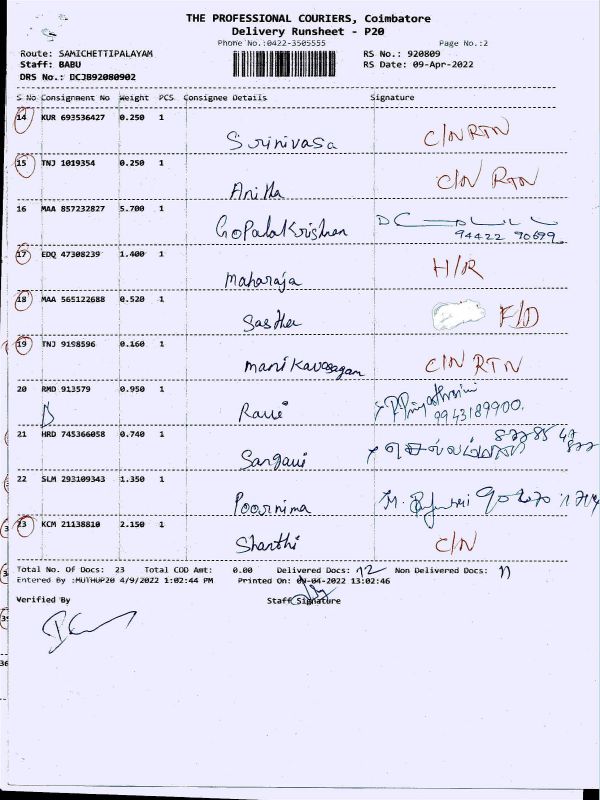 THE PROFESSIONAL COURIERS, Coimbatore
Delivery Runsheet - P20
Phone No.:0422-3505555 Page No.:2
Route: SAMICHETTIPALAYAM RS No.: 920809
Staff: BABU RS Date: 09-Apr-2022
DRS No.: DCJB92080902
S No Consignment No Weight PCS Consignee Details Signature
14 KUR 693536427 0.250 1
Srinivasa C/N RTN
15 TNJ 1019354 0.250 1
Anitta C/N RTN
16 MAA 857232827 5.700 1
GoPalaKrishnan
94422 90699
17 EDQ 47308239 1.400 1
maharaja H/R
18 MAA 565122688 0.520 1
Sastha F/D
19 TNJ 9198596 0.160 1
manikavasagam C/N RTN
20 RMD 913579 0.950 1
Ravi
9943189900.
21 HRD 745366058 0.740 1
877
22 SLM 293109343 1.350 1
Poornima
23 KCM 21138810 2.150 1
Shanthi C/N
Total No. Of Docs: 23 Total COD Amt: 0.00 Delivered Docs: 12 Non Delivered Docs: 11
Entered By :MUTHUP20 4/9/2022 1:02:44 PM Printed On: 09-04-2022 13:02:46
Verified By Staff Signature
36